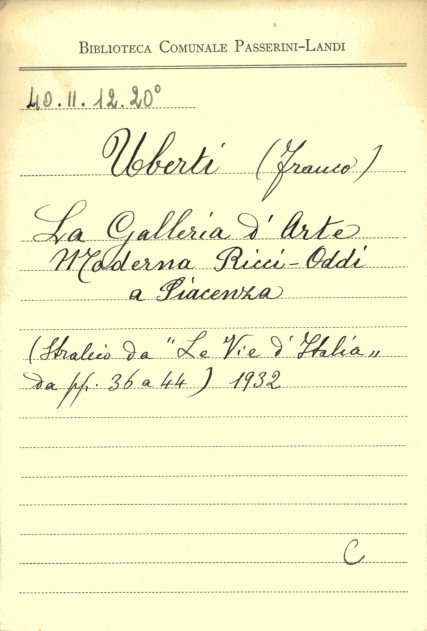 BIBLIOTECA COMUNALE PASSERINI-LANDI
4O.II.12.20°
Uberti (Franco)
La Galleria d'Arte
Moderna Ricci-Oddi
a Piacenza
(Stralcio da "Le Vie d'Italia„
da pp. 36 a 44) 1932
C